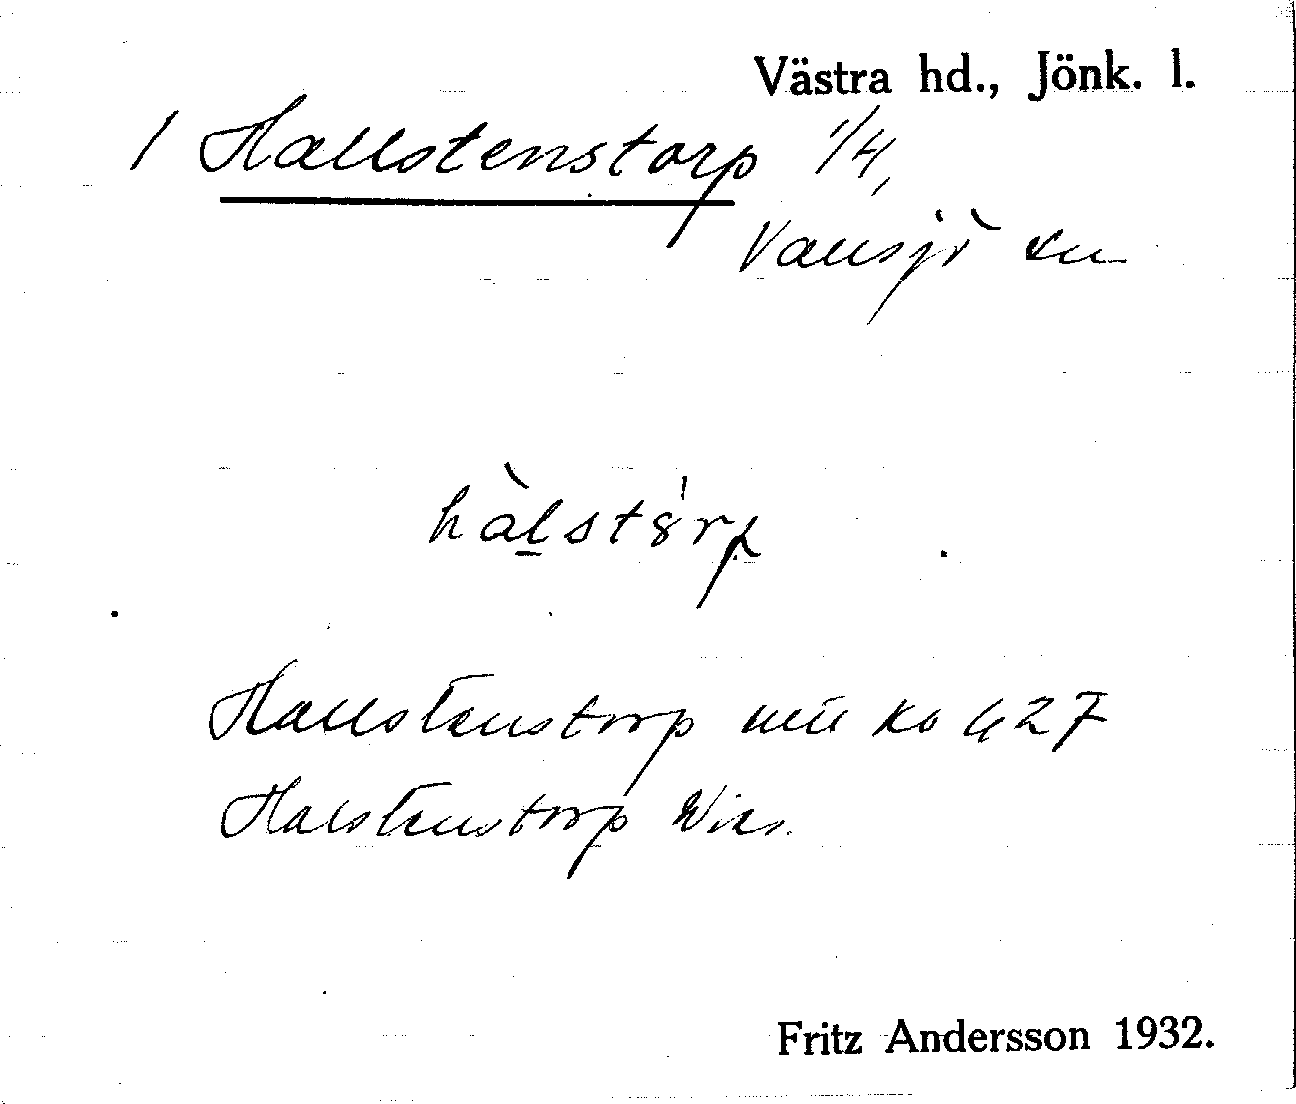 Västra hd., Jönk. l.
1 Hallstenstorp 1/4,
Vallsjö sn
hàlstörp
Hallstenstorp
Halstenstorp
Fritz Andersson 1932.